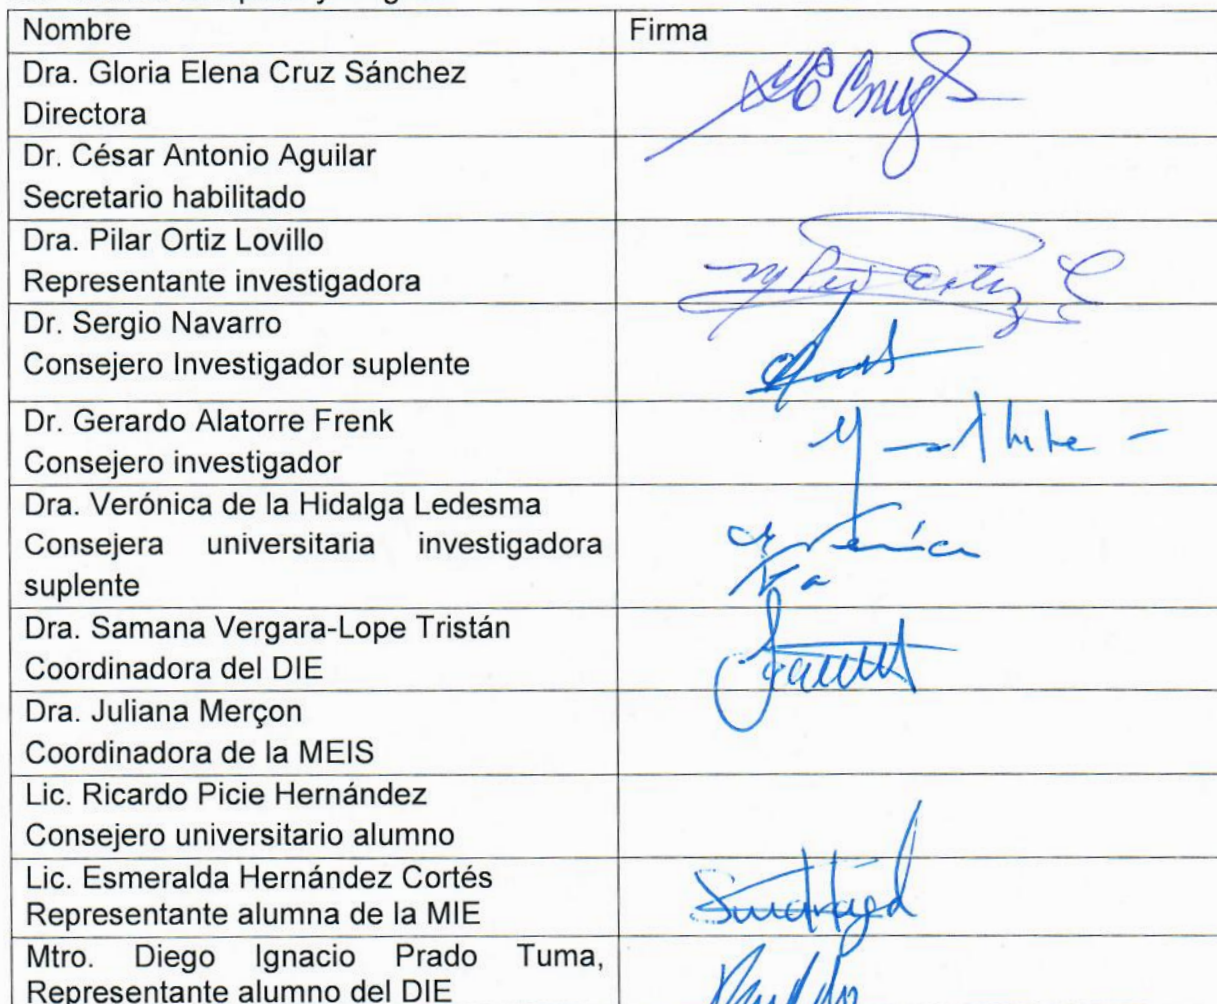 Nombre Firma
Dra. Gloria Elena Cruz Sánchez
Directora
Dr. César Antonio Aguilar
Secretario habilitado
Dra. Pilar Ortiz Lovillo
Representante investigadora
Dr. Sergio Navarro
Consejero Investigador suplente
Dr. Gerardo Alatorre Frenk
Consejero investigador
Dra. Verónica de la Hidalga Ledesma
Consejera universitaria investigadora
suplente
Dra. Samana Vergara-Lope Tristán
Coordinadora del DIE
Dra. Juliana Merçon
Coordinadora de la MEIS
Lic. Ricardo Picie Hernández
Consejero universitario alumno
Lic. Esmeralda Hernández Cortés
Representante alumna de la MIE
Mtro. Diego Ignacio Prado Tuma,
Representante alumno del DIE